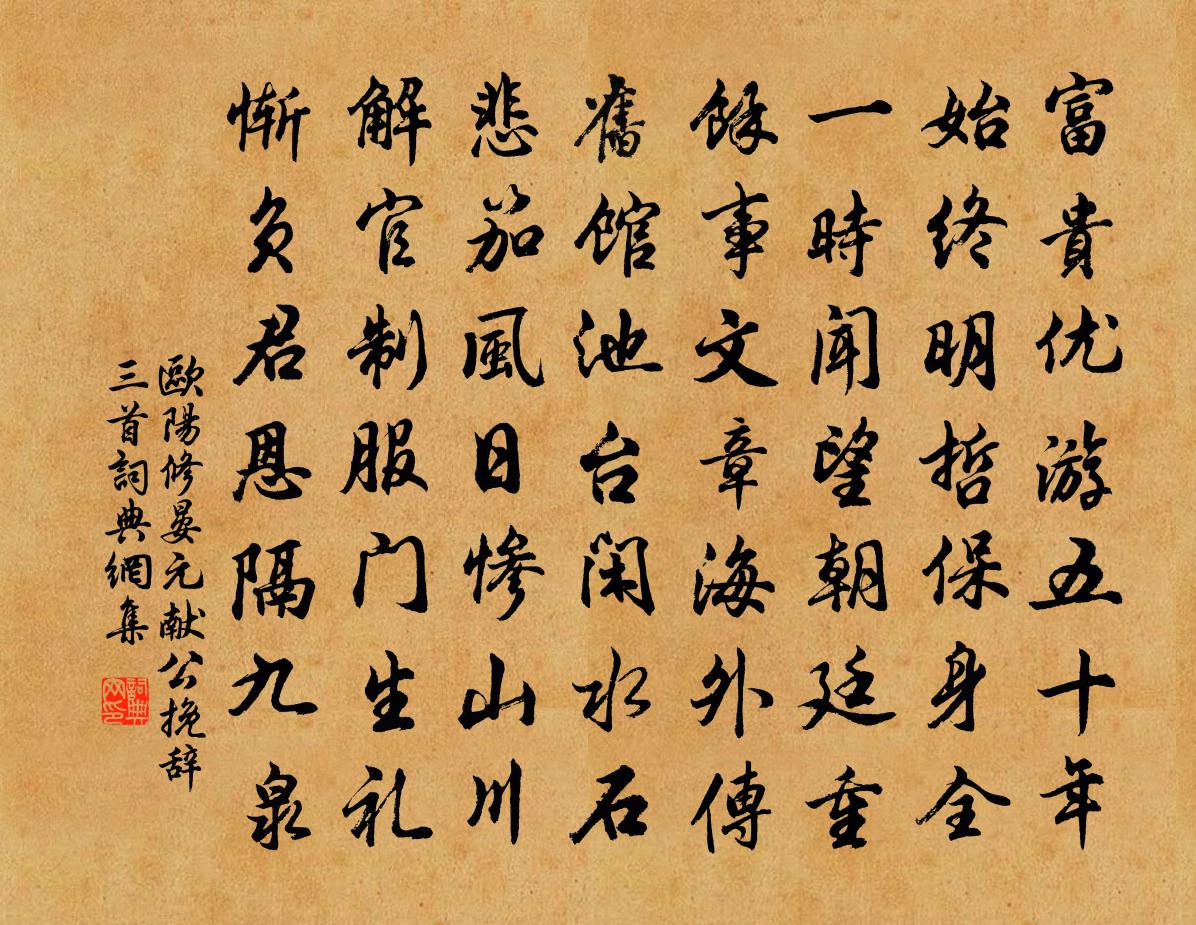 富貴优游五十年
始终明哲保身全
一時闻望朝廷重
餘事文章海外傳
舊馆池台闲水石
悲笳風日惨山川
解官制服门生礼
惭负君恩隔九泉
歐陽修晏元献公挽辞
三首詞典網集
詞典网印